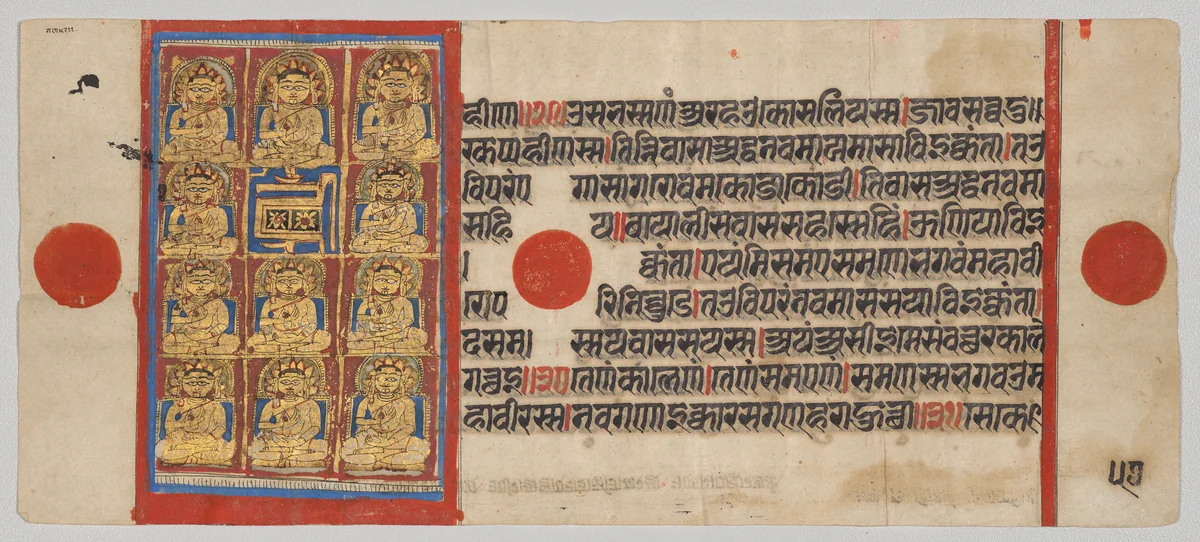 हीणे॥२९॥उसभस्सणं अरहउ।कोसलियस्स।जावसव्वदु॥
रकप्पहीणस्स।तिन्निवासाअद्धनवमाद्यमासाविइक्कंता।तउ
विपरंए गासागरोवमकोडाकोडी।तिवासअद्धनवमा
साहि य॥बायालीसवाससहस्सेहिं।ऊणियाविइ
। क्कंता।एयंमिसमएसमणेभगवंमहावी
रेप रिनिव्वुडे।तउविपरंनवमाससयाविइक्कंता।
दसम। स्सयवाससयस्स।अयंअसीइमेसंवछरेकाले
गछइ॥३०॥तेणंकालेणं।तेणंसमएणं।समणस्सभगवउम
हावीरस्स।नवगणाइक्कारसगणहराहुव्वा॥३१॥सेके
५७